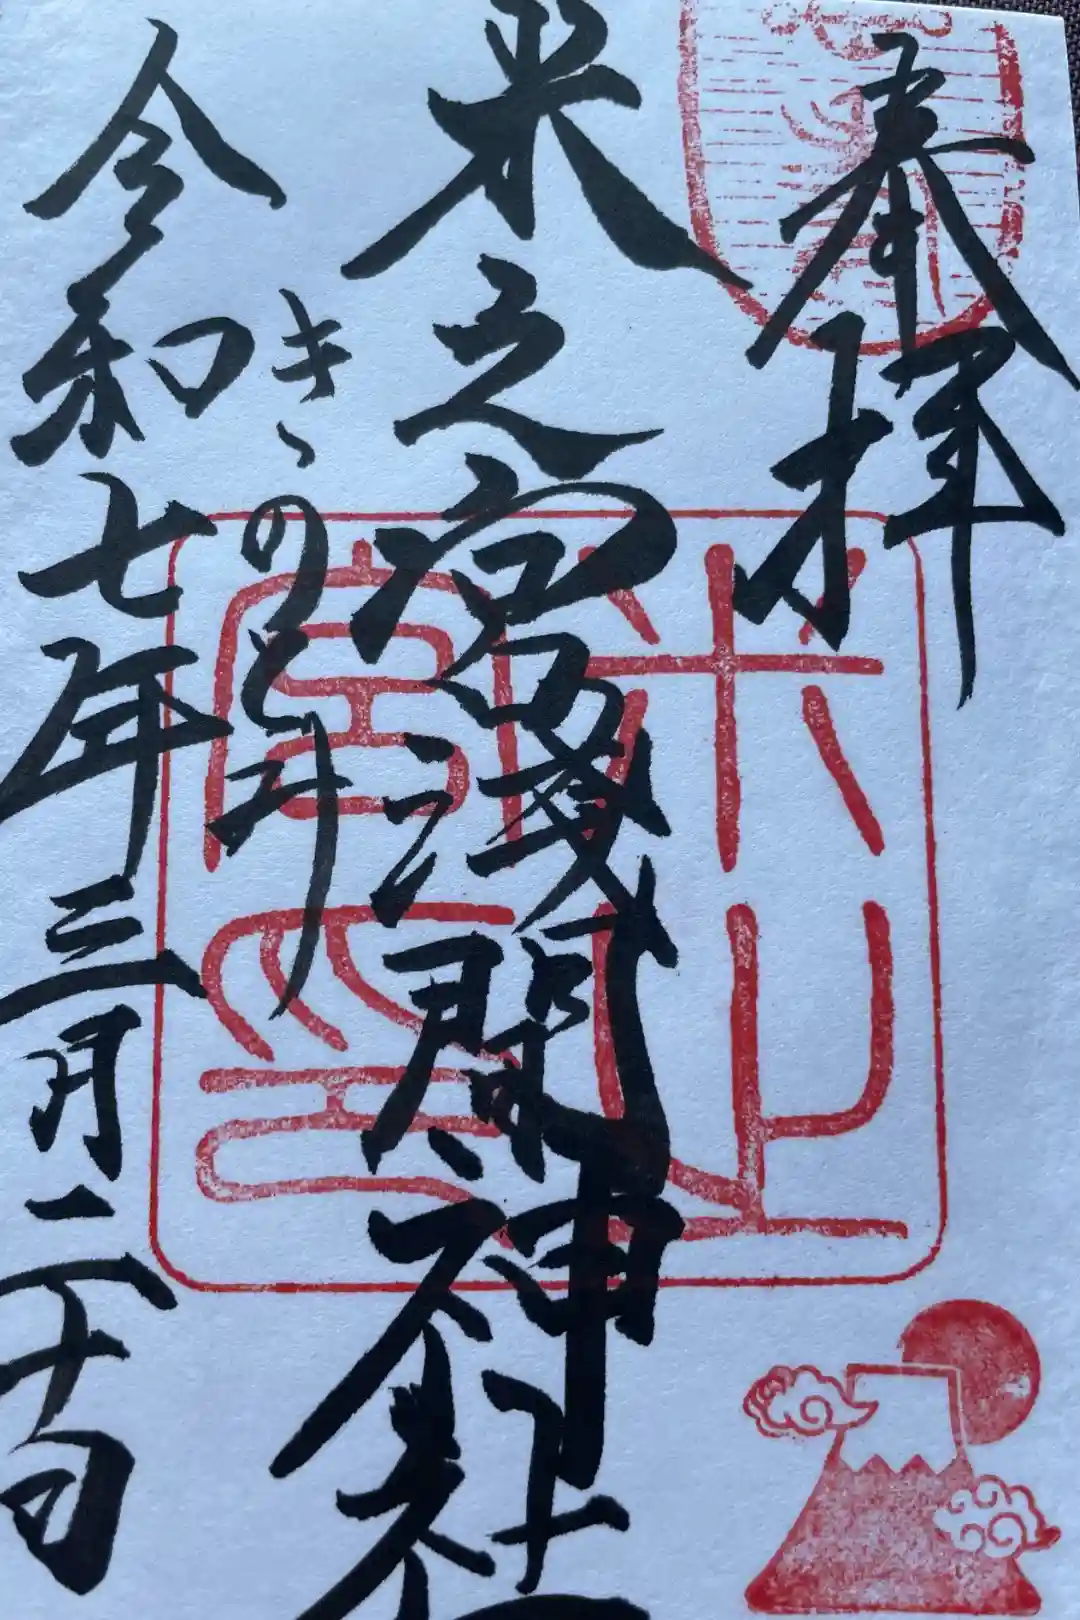 奉拝
米之宮浅間神社
きゝのとり
令和七年三月二十日